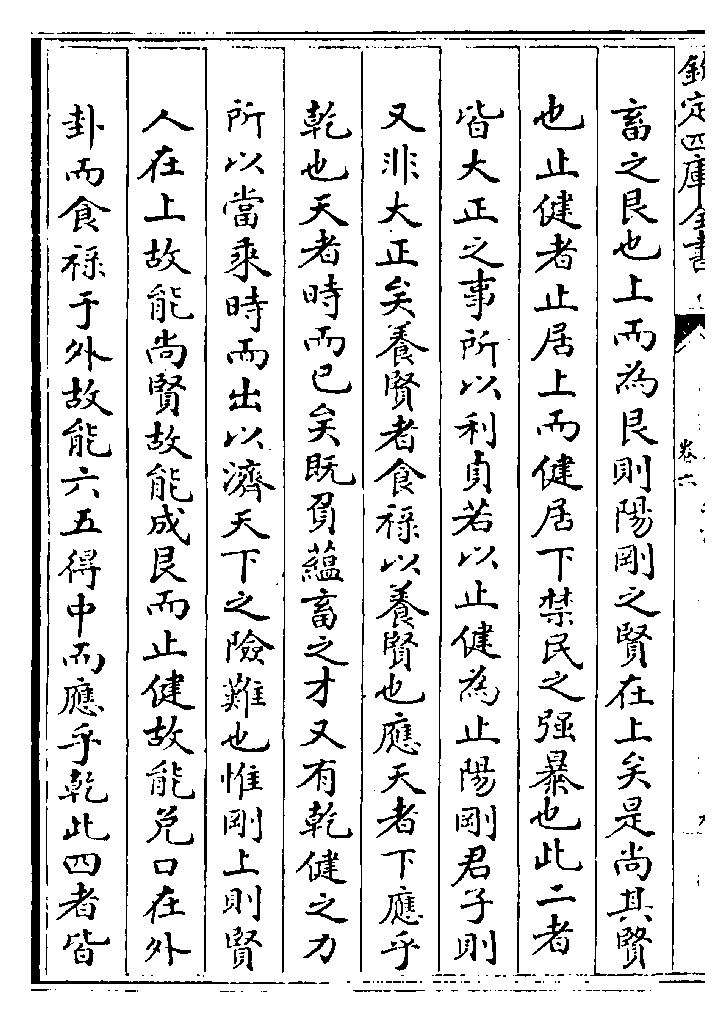 欽定四庫全書
卷六
畜之艮也上而為艮則陽剛之賢在上矣是尚其賢
也止健者止居上而健居下禁民之强暴也此二者
皆大正之事所以利貞若以止健為止陽剛君子則
又非大正矣養賢者食祿以養賢也應天者下應乎
乾也天者時而已矣既負蘊畜之才又有乾健之力
所以當乘時而出以濟天下之險難也惟剛上則賢
人在上故能尚賢故能成艮而止健故能兌口在外
卦而食祿于外故能六五得中而應乎乾此四者皆